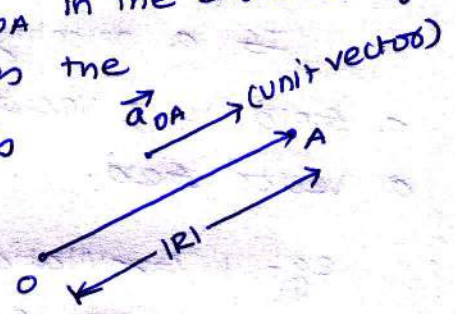 OA in the
the
a⃗ OA (unit vector)
A
|R|
O